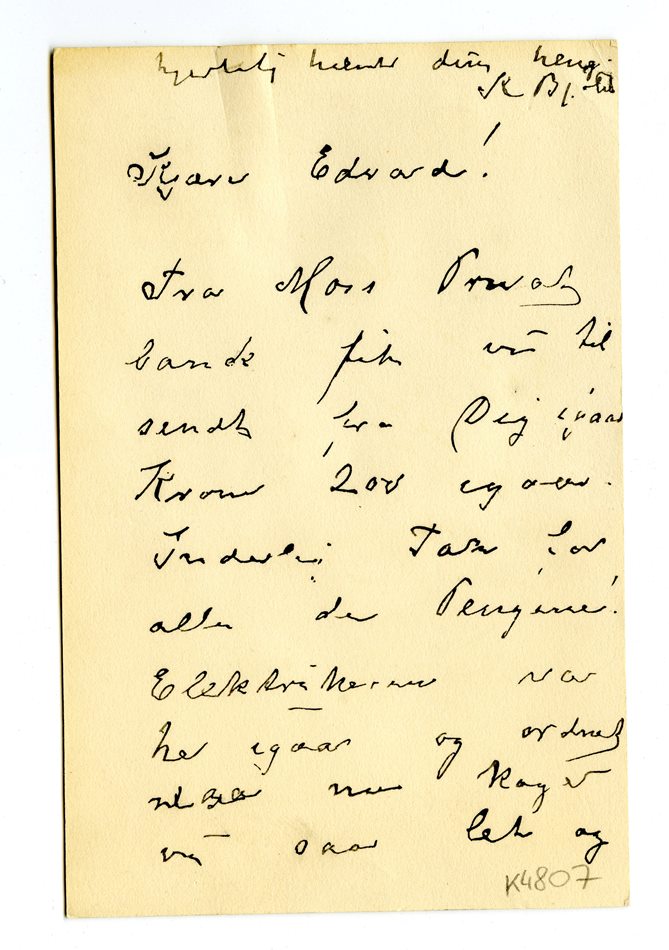 hjertelig din heng.
K Bjølstad
Kjære Edvard!
Fra Moss Privat
bank fik vi til
sendt fra Dig igaar
Kroner 200 igaar.
Inderlig Takk for
alle de Pengene!
Elektrikeren var
her igaar og ordnet
nu koger
vi saa let og
K4807